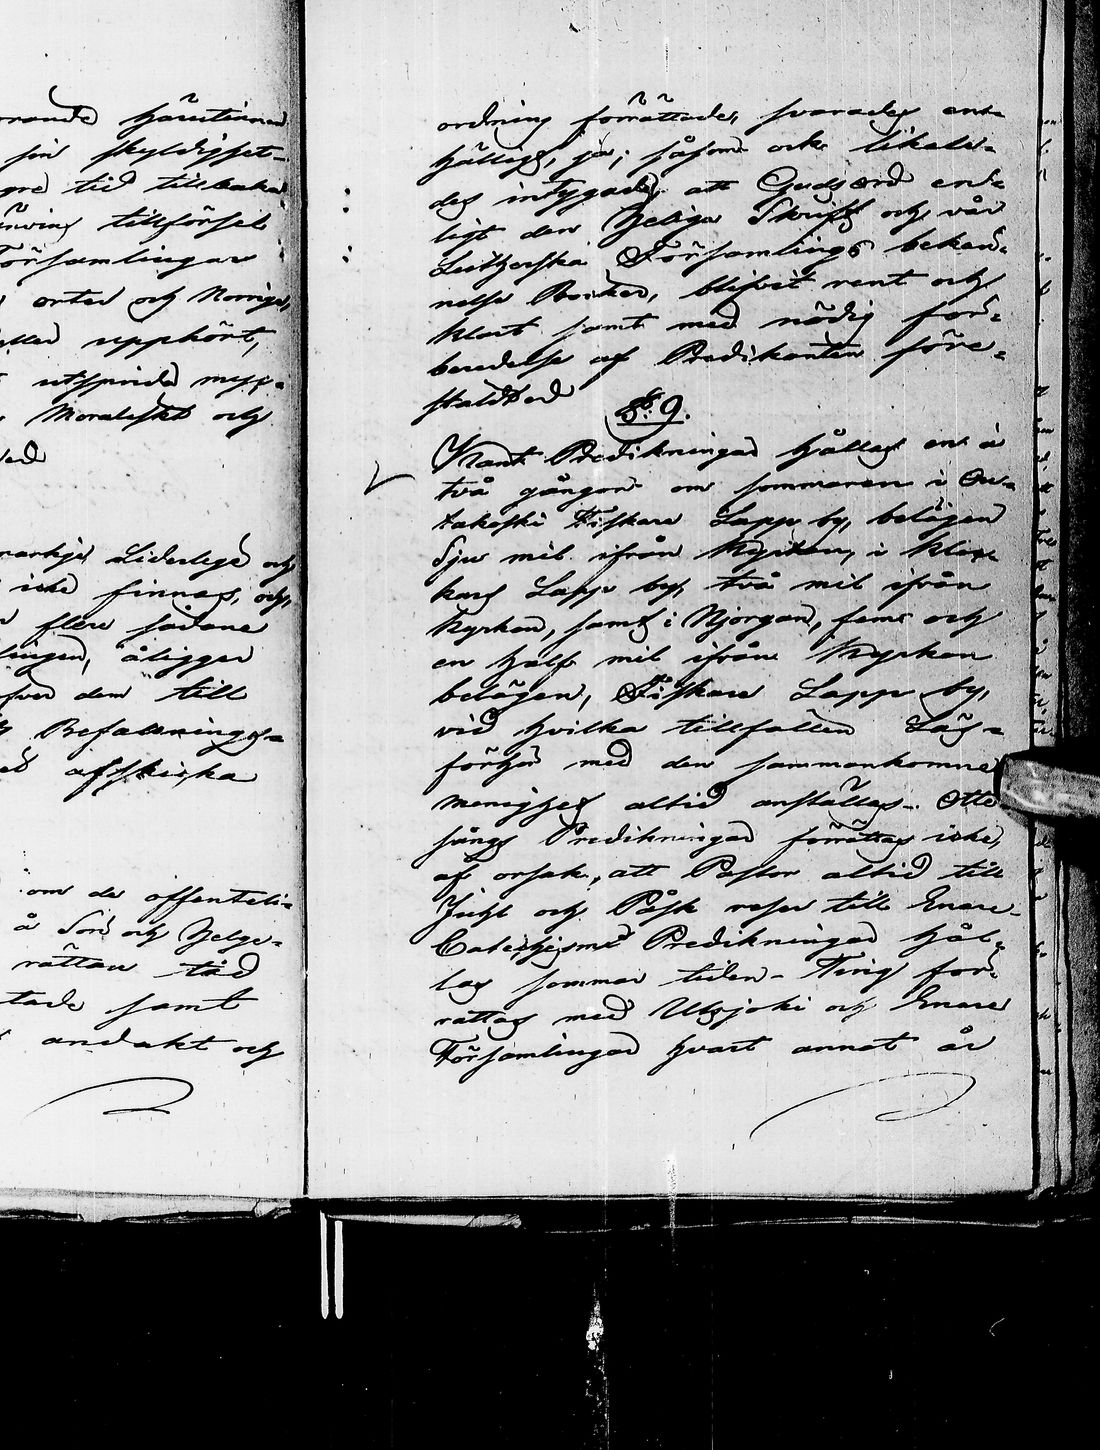 rande härstinnad
sin skyldighet-
gre tid tillbaka
tillförsel
Församlingar
orter och Norrige,
eller upphört,
utspridd
Moraliskt och
Liderlige och
icke finnas, och
flere sådane
åligger
öfver dem till
Befallnings-
afskicka
om de offenteli-
å Sön och Helge-
rättan tid
samt
andakt och
ordning förrättades, svarades en-
hälligt, ja; såsom ock likale-
des intygades att Guds ord en-
ligt den Heliga Skrift och vår
Lutherska Församlings bekän-
nelse Böcker, blifvit rent och
klart samt med nödig för-
beredelse af Predikanten före-
stäldt
§: 9.
Predikningar hålles en à
två gångor om sommaren i Ou-
takoski Fiskare Lapp by, belägen
Sju mil ifrån Kyrkan, i
Lapp by, två mil ifrån
Kyrkan, samt i Njorgan, fem och
en half mil ifrån Kyrkan
belägen, Fiskare Lapp by,
vid hvilka tillfällen Läs-
förhör med den sammankomne
menighet altid anställes. Otte
sångs Predikningar förrättas icke,
af orsak, att Pastor altid till
Juhl och Påsk reser till Enare-
Catechismi Predikningar hål-
las sommar tiden- Ting för-
rättas med Utsjoki och Enare
Församlingar hvart annat år